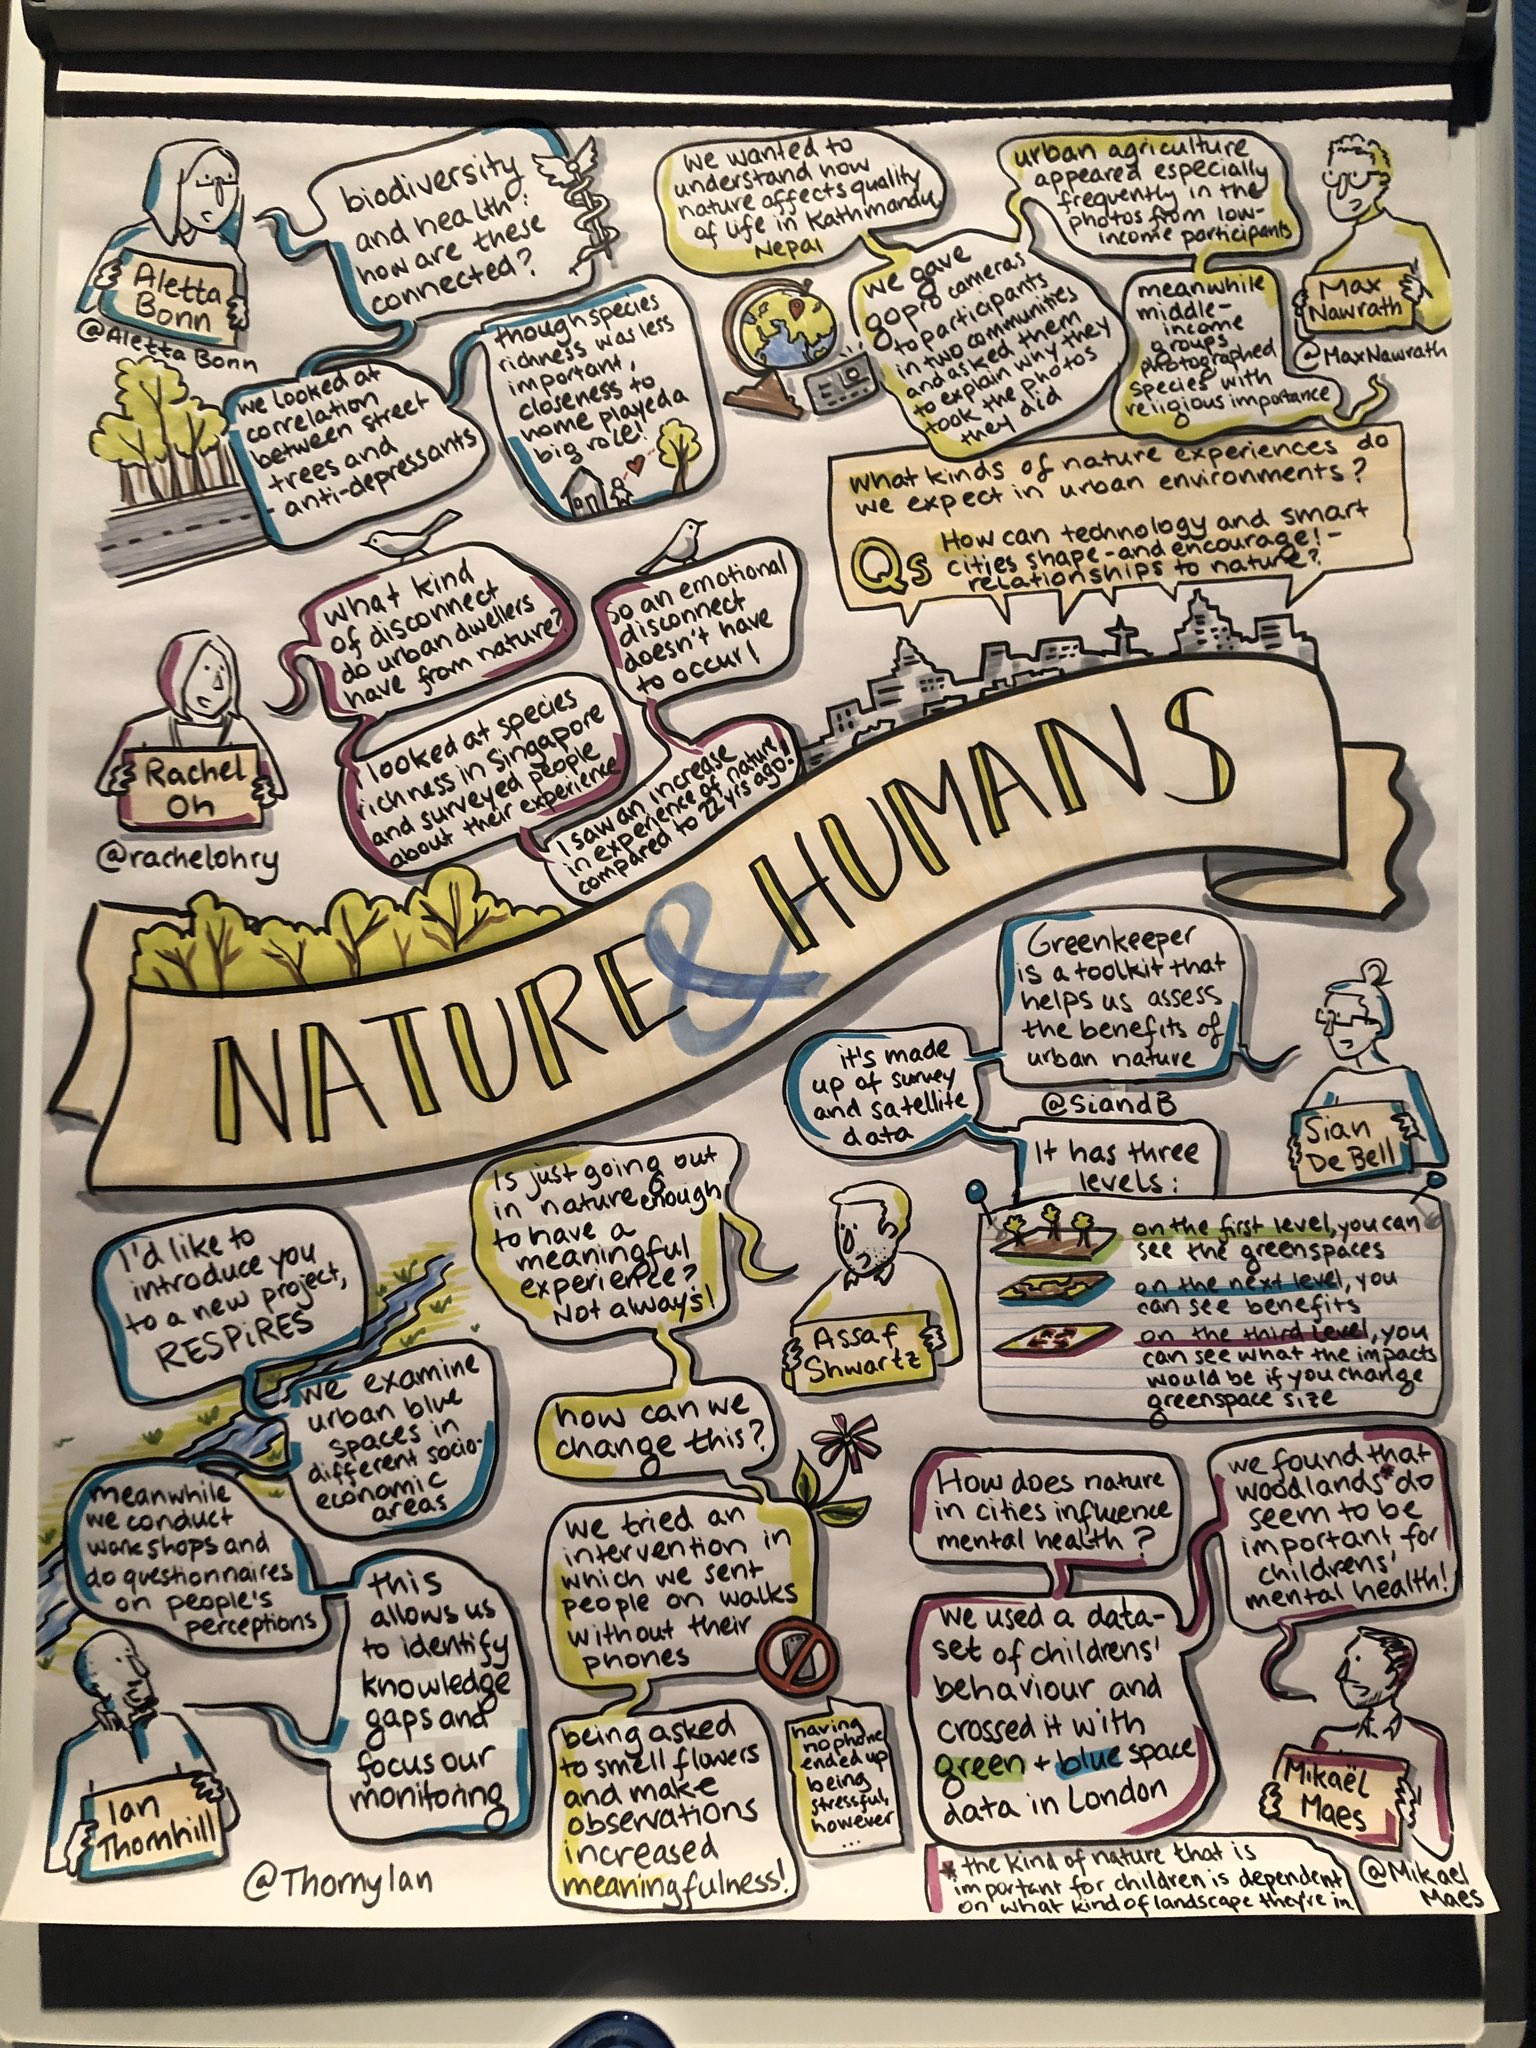 Aletta
Bonn
@Aletta Bonn
biodiversity
and health:
how are these
connected?
we looked at
correlation
between street
trees and
anti-depressants
though species
richness was less
important,
closeness to
home played a
big role!
we wanted to
understand how
nature affects quality
of life in Kathmandu,
Nepal
we gave
gopro cameras
to participants
in two communities
and asked them
to explain why they
took the photos
they did
urban agriculture
appeared especially
frequently in the
photos from low-
income participants
meanwhile
middle-
income
groups
photographed
species with
religious importance
Max
Nawrath
@MaxNawrath
What kinds of nature experiences do
we expect in urban environments?
Qs
How can technology and smart
cities shape-and encourage!-
relationships to nature?
Rachel
Oh
@rachelohry
What kind
of disconnect
do urban dwellers
have from nature?
I looked at species
richness in Singapore
and surveyed people
about their experience
I saw an increase
in experience of nature
compared to 22 yrs ago!
so an emotional
disconnect
doesn't have
to occur!
NATURE & HUMANS
Greenkeeper
is a toolkit that
helps us assess
the benefits of
urban nature
@SiandB
Sian
De Bell
it's made
up of survey
and satellite
data
It has three
levels:
on the first level, you can
see the greenspaces
on the next level, you
can see benefits
on the third level, you
can see what the impacts
would be if you change
greenspace size
I'd like to
introduce you
to a new project,
RESPiRES
we examine
urban blue
spaces in
different socio-
economic
areas
meanwhile
we conduct
workshops and
do questionnaires
on people's
perceptions
this
allows us
to identify
knowledge
gaps and
focus our
monitoring
Ian
Thornhill
@ThornyIan
Is just going out
in nature enough
to have a
meaningful
experience?
Not always!
Assaf
Shwartz
how can we
change this?
we tried an
intervention in
which we sent
people on walks
without their
phones
being asked
to smell flowers
and make
observations
increased
meaningfulness!
having
no phone
ended up
being
stressful,
however
...
How does nature
in cities influence
mental health?
We used a data-
set of childrens'
behaviour and
crossed it with
green + blue space
data in London
we found that
woodlands* do
seem to be
important for
childrens'
mental health!
Mikaël
Maes
@Mikael
Maes
* the kind of nature that is
important for children is dependent
on what kind of landscape they're in